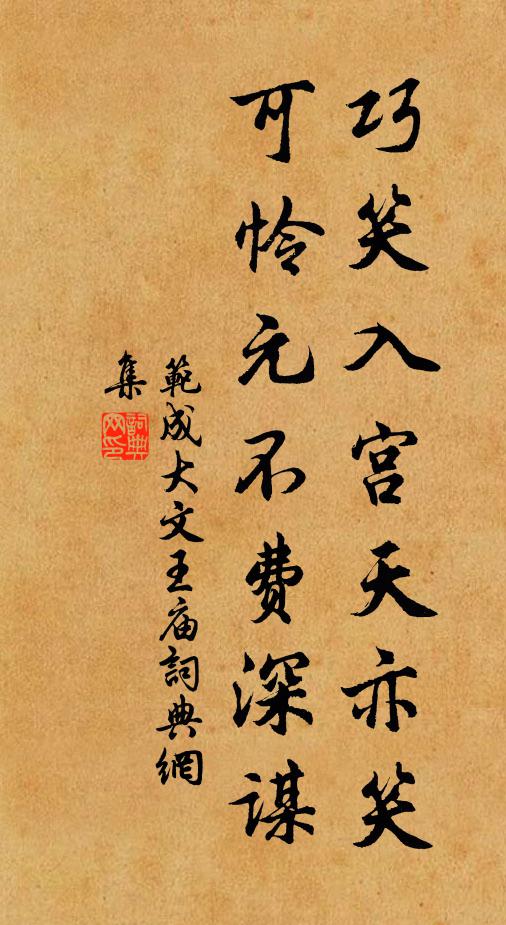 巧笑入宫天亦笑
可怜元不费深谋
範成大文王庙詞典網
集
詞典网印